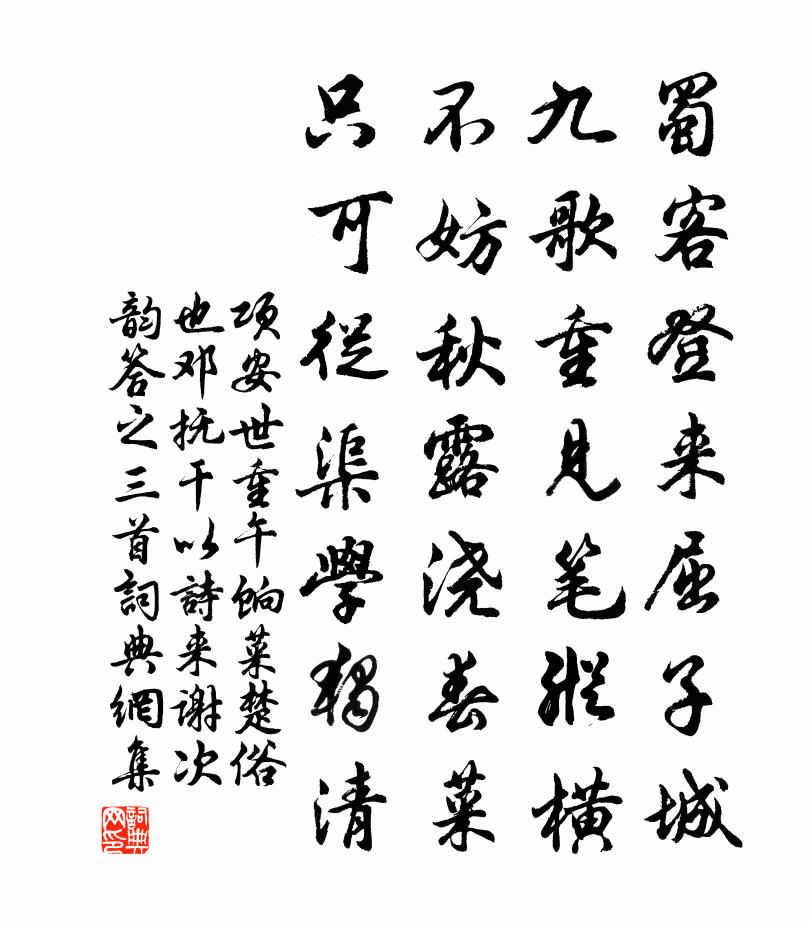 蜀客登来屈子城
九歌重见笔縱横
不妨秋露浇春菜
只可從渠學独清
项安世重午饷菜楚俗
也邓抚干以詩来谢次
韵答之三首詞典網集
詞典网印